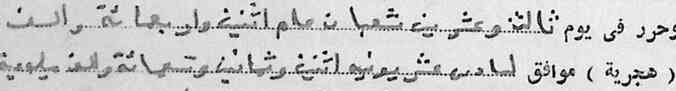 وحرر فى يوم ثالث وعشرين شعبان عام اثنين واربعمائة والف
( هجرية ) موافق لسادس عشر يونيه اثنين وثمانين وتسعمائة والف ميلادية